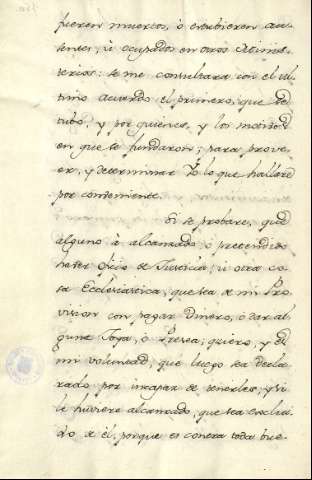 fueren muertos, ò estubieren au-
sentes, ù ocupados en otros Minis-
terios: se me consultarà con el ul-
timo acuerdo el primero, que
tubo, y por quienes, y los motivos
en que se fundaron; para prove-
er, y determinar Yo lo que hallare
por conteniente.
Si se probare, que
alguno à alcanzado ò pretendido
haver Oficio de Justicia, ù otra co-
sa Eclesiastica, que sea de mi Pro-
vision con pagar Dinero, ò dar al-
guna Joya, ò Presea; quiero, y es
mi voluntad, que luego sea decla-
rado por incapaz de tenerles, y si
le huviere alcanzado, que sea exclui-
do de él, porque es contra toda bue-